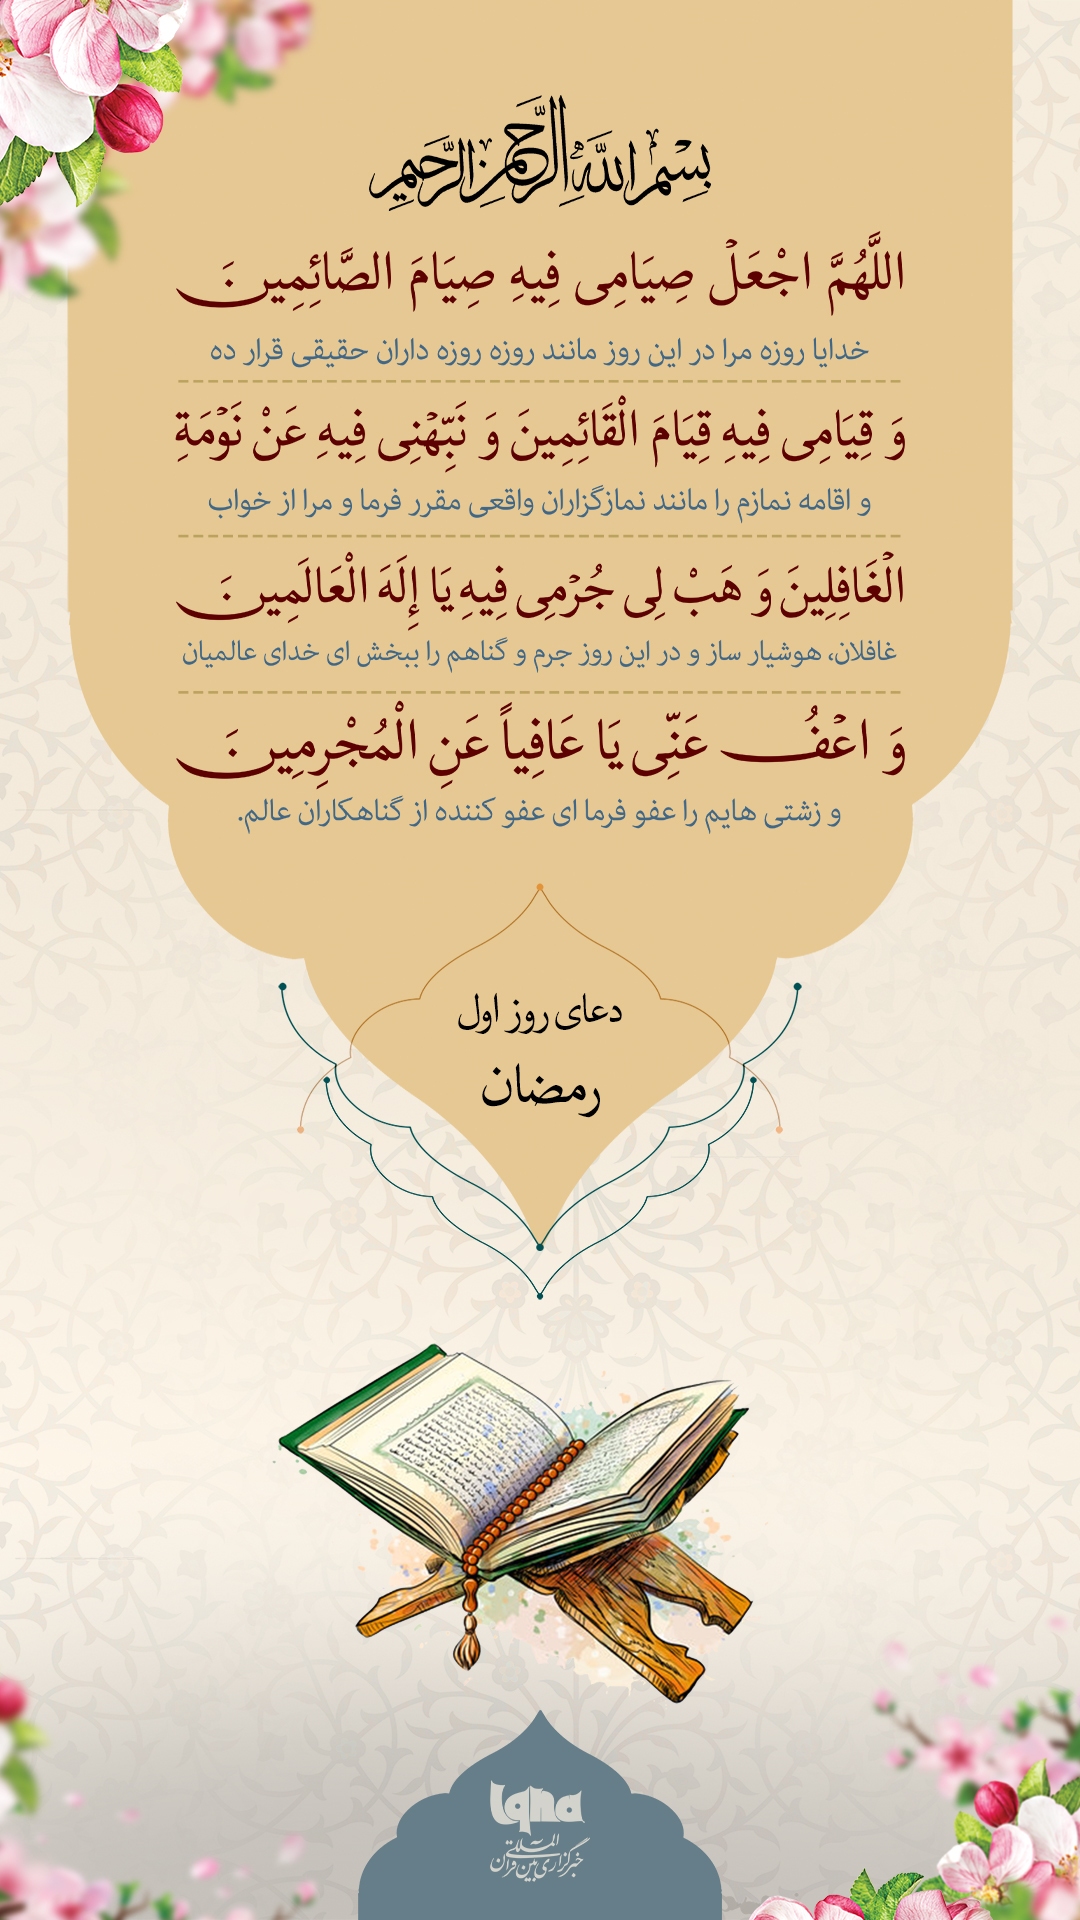 بِسْمِ اللَّهِ الرَّحْمَنِ الرَّحِيمِ
اللَّهُمَّ اجْعَلْ صِيَامِى فِيهِ صِيَامَ الصَّائِمِينَ
خدایا روزه مرا در این روز مانند روزه روزه داران حقیقی قرار ده
وَ قِيَامِى فِيهِ قِيَامَ الْقَائِمِينَ وَ نَبِّهْنِى فِيهِ عَنْ نَوْمَةِ
و اقامه نمازم را مانند نمازگزاران واقعی مقرر فرما و مرا از خواب
الْغَافِلِينَ وَ هَبْ لِى جُرْمِى فِيهِ يَا إِلَهَ الْعَالَمِينَ
غافلان، هوشیار ساز و در این روز جرم و گناهم را ببخش ای خدای عالمیان
وَ اعْفُ عَنِّى يَا عَافِياً عَنِ الْمُجْرِمِينَ
و زشتی هایم را عفو فرما ای عفو کننده از گناهکاران عالم.
دعای روز اول
رمضان
iqna
خبرگزاری بین المللی قرآن